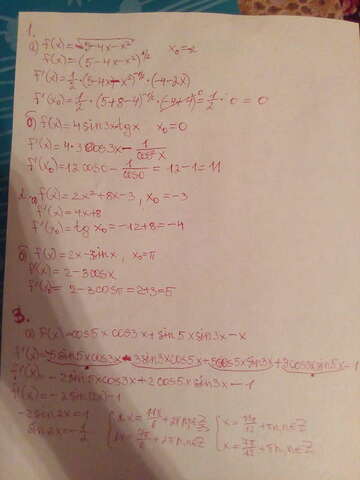 1.
а) f(x)=√5-4x-x² x₀=-2
f(x)=(5-4x-x²)^1/2
f'(x)=1/2·(5-4x-x²)^-1/2·(-4-2x)
f'(x₀)=1/2·(5+8-4)^-1/2·(-4+4)=1/2·0=0
б) f(x)=4sin3x-tgx x₀=0
f'(x)=4·3cos3x-1/cos²x
f'(x₀)=12cos0-1/cos0=12-1=11
2. а) f(x)=2x²+8x-3, x₀=-3
f'(x)=4x+8
f'(x₀)=tg x₀=-12+8=-4
б) f(x)=2x-3sinx, x₀=π
f'(x)=2-3cosx
f'(x₀)=2-3cosπ=2+3=5
3.
а) f(x)=cos5x cos3x+sin5x sin3x-x
f'(x)=-5sin5x cos3x-3sin3x cos5x+5cos5x sin3x+3cos3x sin5x-1
f'(x)=-2sin5x cos3x+2cos5x sin3x-1
f'(x)=-2sin(2x)-1
-2sin2x=1
sin2x=-1/2
2x=11π/6+2πn,n∈Z
2x=7π/6+2πn,n∈Z
x=11π/12+πn,n∈Z
x=7π/12+πn,n∈Z